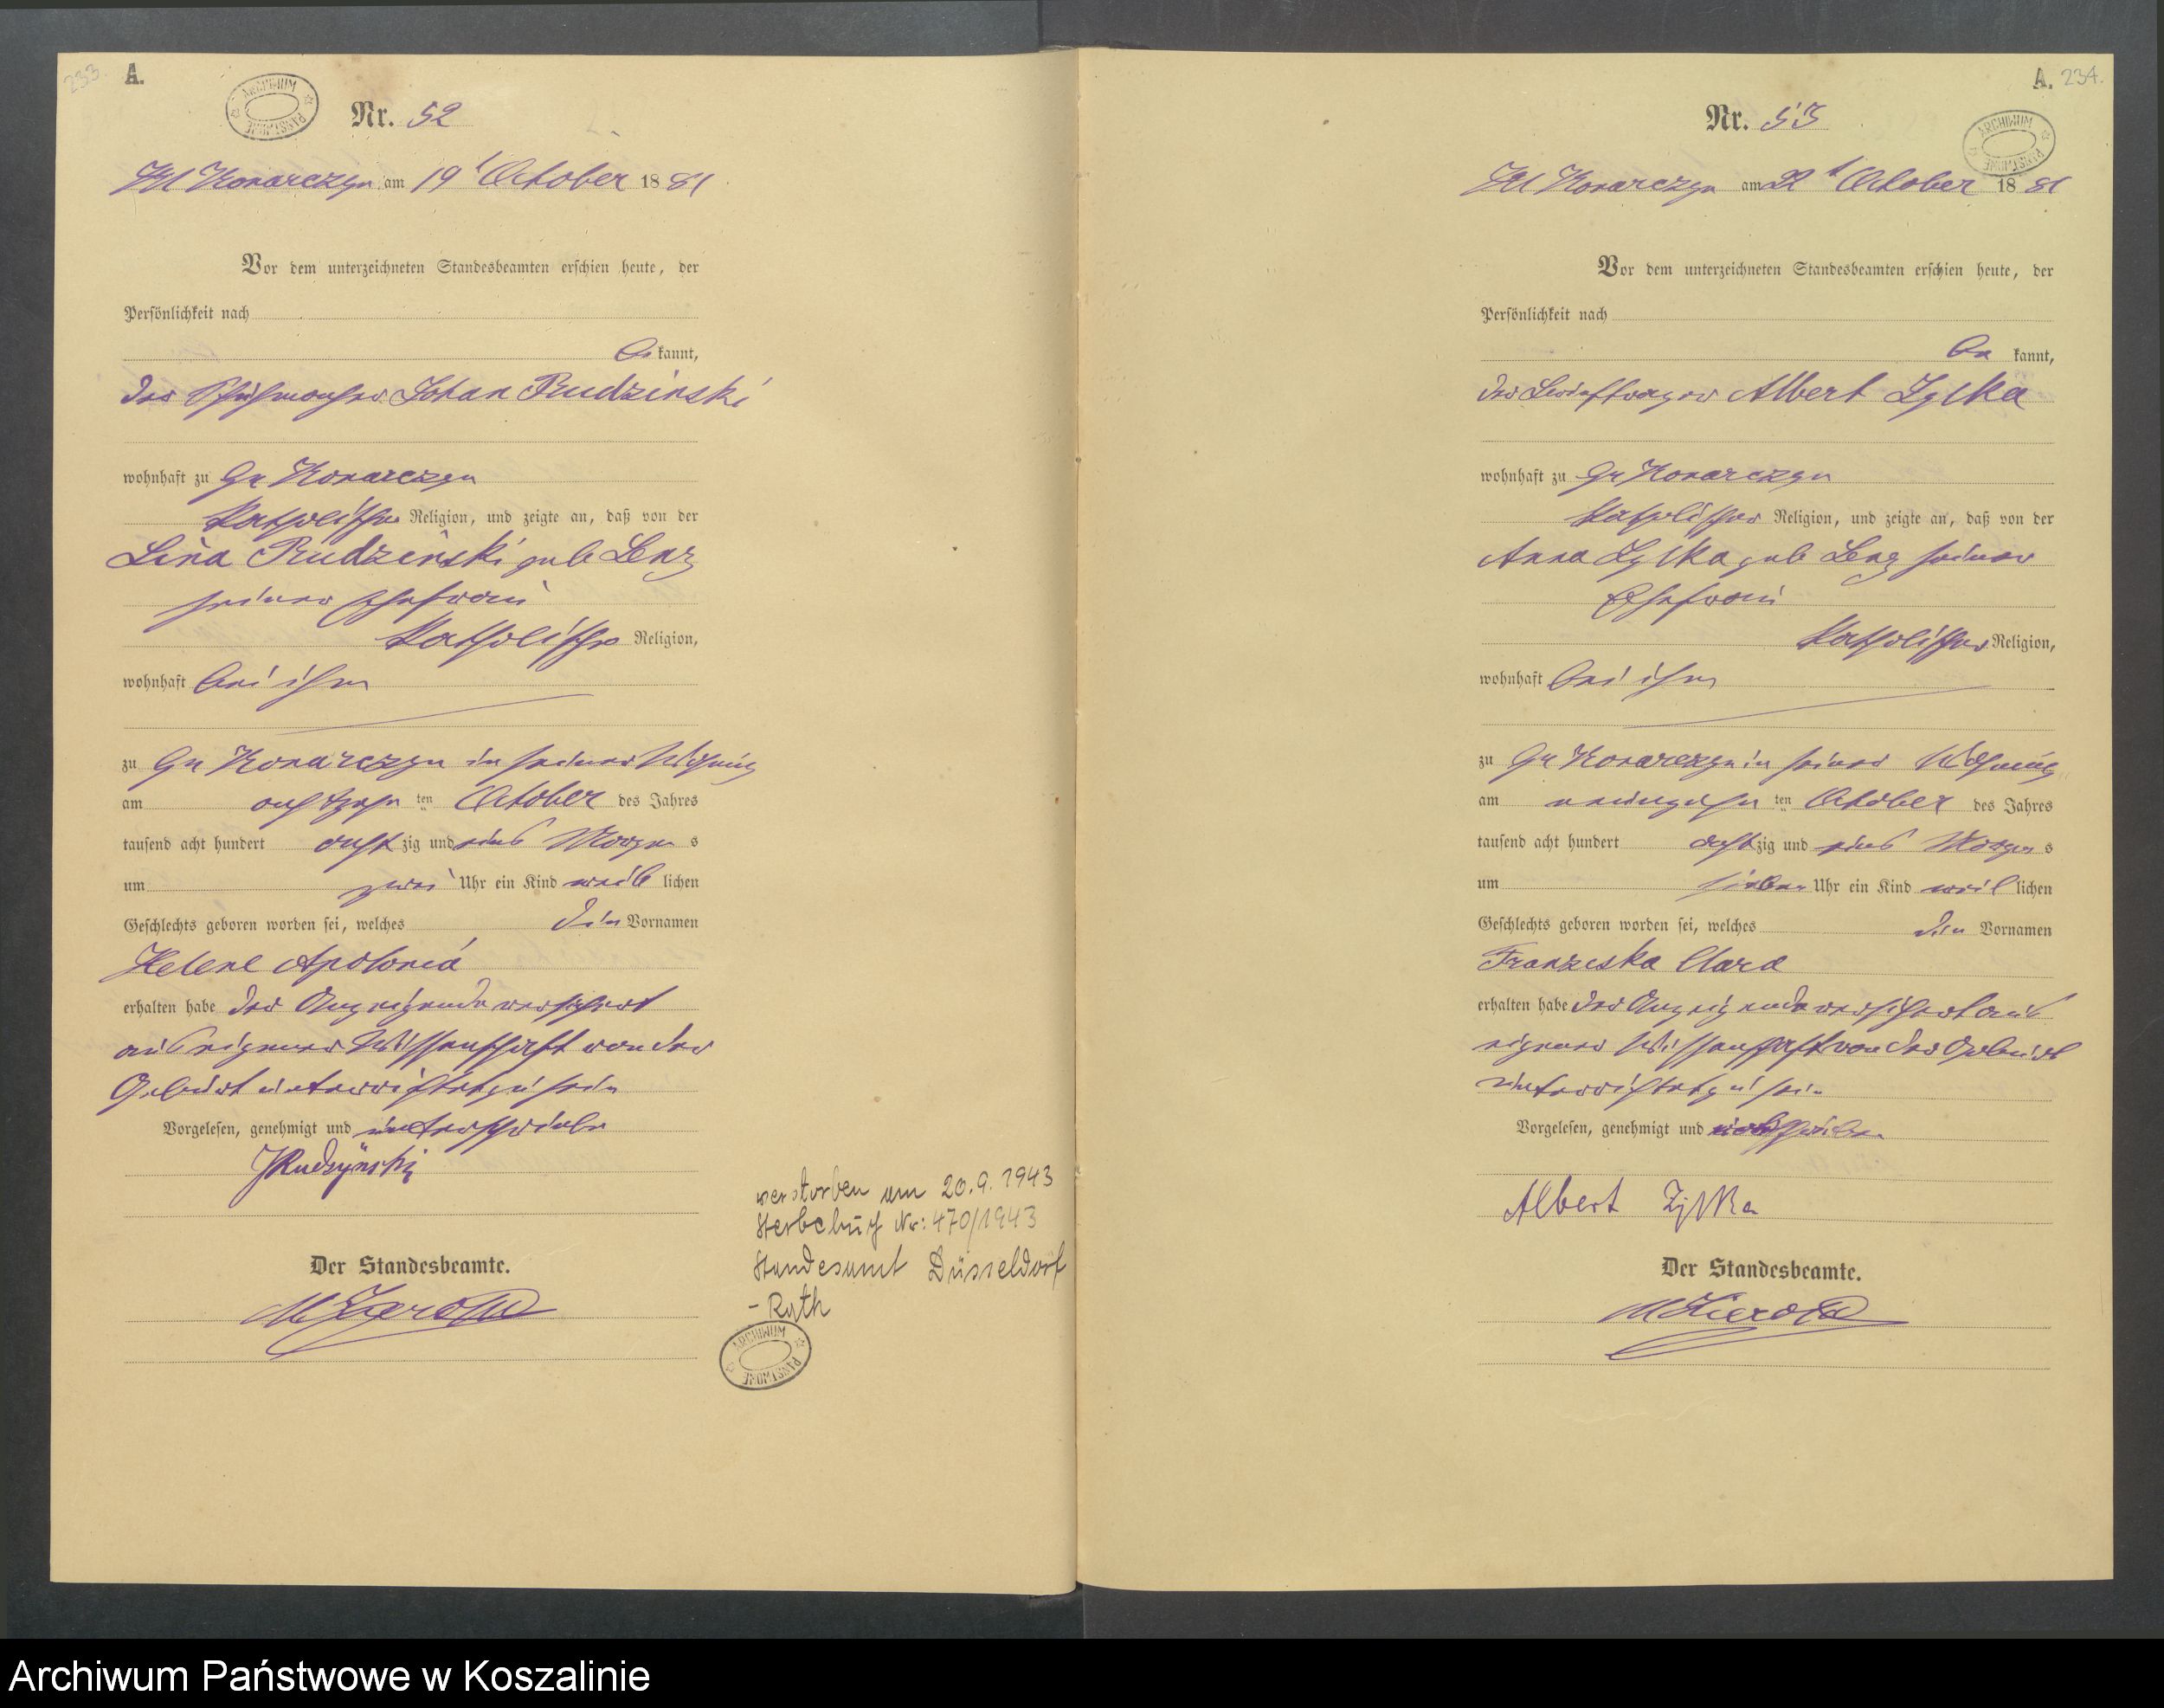 233.
A.
ARCHIWUM PAŃSTWOWE
Nr. 52
Kl Konarczyn am 19 t October 1881
Vor dem unterzeichneten Standesbeamten erschien heute, der
Persönlichkeit nach
be kannt,
der Schuhmacher Johan Rudzinski
wohnhaft zu Gr Konarczyn
katholischer Religion, und zeigte an, daß von der
Lina Rudzinski geb Lenz
seiner Ehefrau
katholischer Religion,
wohnhaft bei ihm
zu Gr Konarczyn in seiner Wohnung
am achtzehn ten October des Jahres
tausend acht hundert acht zig und eins Morgen s
um zwei Uhr ein Kind weib lichen
Geschlechts geboren worden sei, welches die Vornamen
Helene Apolonia
erhalten habe der Anzeigende versichert
aus eigener Wissenschaft von der
Geburt unterrichtet zu sein
Vorgelesen, genehmigt und unterschrieben
JRudzynski
Der Standesbeamte.
verstorben am 20.9.1943
Sterbebuch Nr: 470/1943
Standesamt Düsseldorf
- Rath
ARCHIWUM PAŃSTWOWE
A. 234.
Nr. 53
ARCHIWUM PAŃSTWOWE
Kl Konarczyn am 22 t October 1881
Vor dem unterzeichneten Standesbeamten erschien heute, der
Persönlichkeit nach
be kannt,
der Albert Zylka
wohnhaft zu Gr Konarczyn
katholischer Religion, und zeigte an, daß von der
Anna Zylka geb Lenz seiner
Ehefrau
katholischer Religion,
wohnhaft bei ihm
zu Gr Konarczyn in seiner Wohnung
am neunzehn ten October des Jahres
tausend acht hundert acht zig und eins Morgen s
um sieben Uhr ein Kind weib lichen
Geschlechts geboren worden sei, welches die Vornamen
Franziska Clara
erhalten habe der Anzeigende versichert aus
eigener Wissenschaft von der Geburt
unterrichtet zu sein
Vorgelesen, genehmigt und unterschrieben
Albert Zylka
Der Standesbeamte.
Archiwum Państwowe w Koszalinie